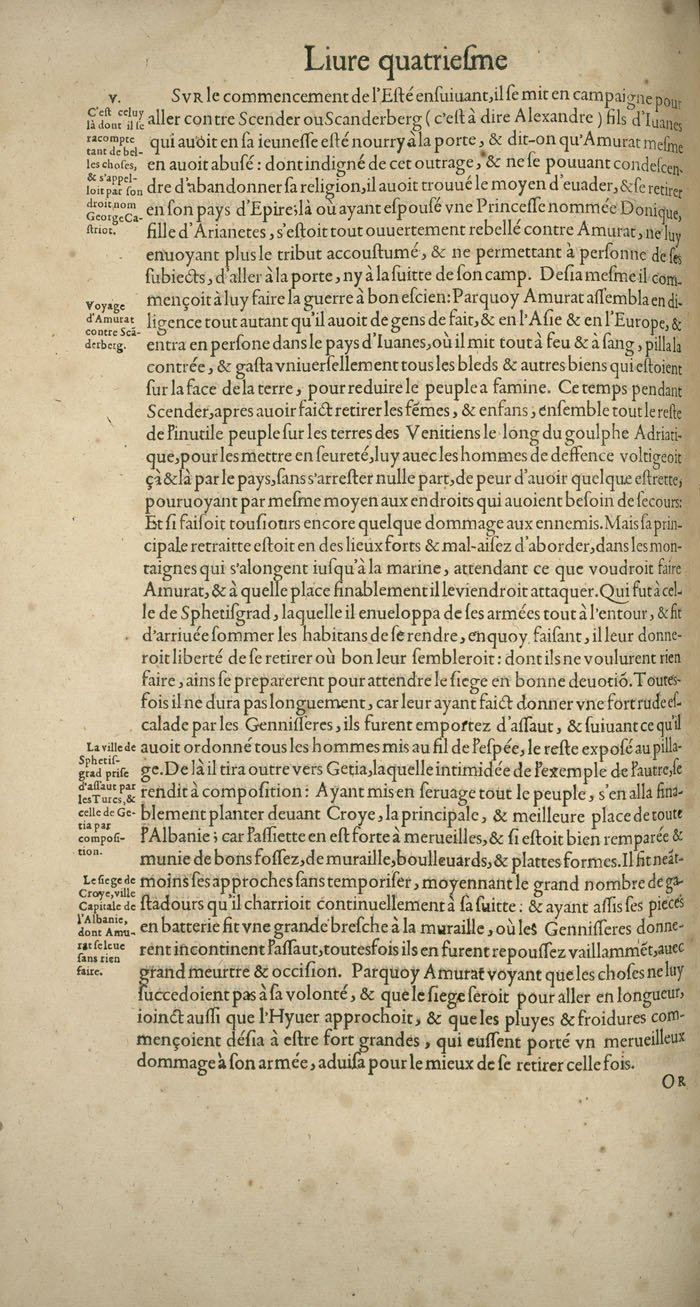 Liure quatrieſme
V.
C'eſt celuy
là dont il ſe
racompte
tant de bel-
les choſes,
& s'appel-
loit par ſon
droit nom
George Ca-
ſtriot.
SVR le commencement de l'Eſté enſuiuant, il ſe mit en campaigne pour
aller contre Scender ou Scanderberg (c'eſt à dire Alexandre) fils d'Iuanes
qui auoit en ſa ieuneſſe eſté nourry à la porte, & dit-on qu'Amurat meſme
en auoit abuſé: dont indigné de cet outrage, & ne ſe pouuant condeſcen-
dre d'abandonner ſa religion, il auoit trouué le moyen d'euader, & ſe retirer
en ſon pays d'Epire; là où ayant eſpouſé vne Princeſſe nommée Donique,
fille d'Arianetes, s'eſtoit tout ouuertement rebellé contre Amurat, ne luy
enuoyant plus le tribut accouſtumé, & ne permettant à perſonne de ſes
ſubiects, d'aller à la porte, ny à la ſuitte de ſon camp. Deſia meſme il com-
Voyage
d'Amurat
contre Scã-
derberg.
mençoit à luy faire la guerre à bon eſcien: Parquoy Amurat aſſembla en di-
ligence tout autant qu'il auoit de gens de fait, & en l'Aſie & en l'Europe, &
entra en perſone dans le pays d'Iuanes, où il mit tout à feu & à ſang, pilla la
contrée, & gaſta vniuerſellement tous les bleds & autres biens qui eſtoient
ſur la face de la terre, pour reduire le peuple a famine. Ce temps pendant
Scender, apres auoir faict retirer les fémes, & enfans, enſemble tout le reſte
de l'inutile peuple ſur les terres des Venitiens le long du goulphe Adriati-
que, pour les mettre en ſeureté, luy auec les hommes de deffence voltigeoit
çà & là par le pays, ſans s'arreſter nulle part, de peur d'auoir quelque eſtrette,
pouruoyant par meſme moyen aux endroits qui auoient beſoin de ſecours:
Et ſi faiſoit touſiours encore quelque dommage aux ennemis. Mais ſa prin-
cipale retraitte eſtoit en des lieux forts & mal-aiſez d'aborder, dans les mon-
taignes qui s'alongent iuſqu'à la marine, attendant ce que voudroit faire
Amurat, & à quelle place finablement il le viendroit attaquer. Qui fut à cel-
le de Sphetiſgrad, laquelle il enueloppa de ſes armées tout à l'entour, & fit
d'arriuée ſommer les habitans de ſe rendre, enquoy faiſant, il leur donne-
roit liberté de ſe retirer où bon leur ſembleroit: dont ils ne voulurent rien
faire, ains ſe preparerent pour attendre le ſiege en bonne deuotiõ. Toutes-
fois il ne dura pas longuement, car leur ayant faict donner vne fort rude eſ-
calade par les Genniſſeres, ils furent emportez d'aſſaut, & ſuiuant ce qu'il
La ville de
Sphetiſ-
grad priſe
d'aſſaut par
les Turcs, &
celle de Ge-
tia par
compoſi-
tion.
auoit ordonné tous les hommes mis au fil de l'eſpée, le reſte expoſé au pilla-
ge. De là il tira outre vers Getia, laquelle intimidée de l'exemple de l'autre, ſe
rendit à compoſition: Ayant mis en ſeruage tout le peuple, s'en alla fina-
blement planter deuant Croye, la principale, & meilleure place de toute
l'Albanie; car l'aſſiette en eſt forte à merueilles, & ſi eſtoit bien remparée &
munie de bons foſſez, de muraille, boulleuards, & plattes formes. Il fit neât-
Le ſiege de
Croye, ville
Capitale de
l'Albanie,
dont Amu-
rat ſe leue
ſans rien
faire.
moins ſes approches ſans temporiſer, moyennant le grand nombre de ga-
ſtadours qu'il charrioit continuellement à ſa ſuitte: & ayant aſſis ſes pieces
en batterie fit vne grande breſche à la muraille, où les Genniſſeres donne-
rent incontinent l'aſſaut, toutesfois ils en furent repouſſez vaillammét, auec
grand meurtre & occiſion. Parquoy Amurat voyant que les choſes ne luy
ſuccedoient pas à ſa volonté, & que le ſiege ſeroit pour aller en longueur,
ioinct auſſi que l'Hyuer approchoit, & que les pluyes & froidures com-
mençoient déſia à eſtre fort grandes, qui euſſent porté vn merueilleux
dommage à ſon armée, aduiſa pour le mieux de ſe retirer celle fois.
OR